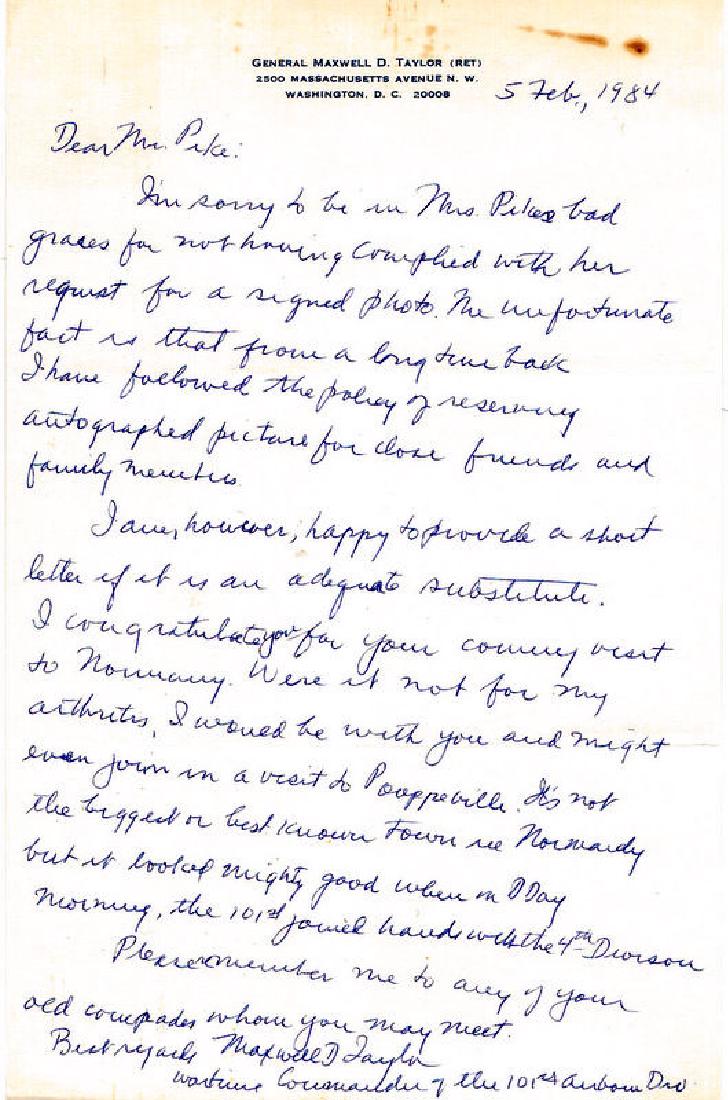 GENERAL MAXWELL D. TAYLOR (RET)
2500 MASSACHUSETTS AVENUE N. W.
WASHINGTON, D. C. 20008
5 Feb., 1984
Dear Mr. Pike:
I'm sorry to be in Mrs. Pikes bad
graces for not having complied with her
request for a signed photo. The unfortunate
fact is that from a long time back
I have followed the policy of reserving
autographed picture for close friends and
family members.
I am, however, happy to provide a short
letter if it is an adequate substitute.
I congratulate you for your coming visit
to Normany. Were it not for my
arthritis, I would be with you and might
even join in a visit to Pouppeville. It's not
the biggest or best known town in Normandy
but it looked mighty good when on D Day
morning, the 101st joined hands with the 4th Division
Please remember me to any of your
old comrades whom you may meet.
Best regards Maxwell D Taylor
wartime Commander of the 101st Airborne Div